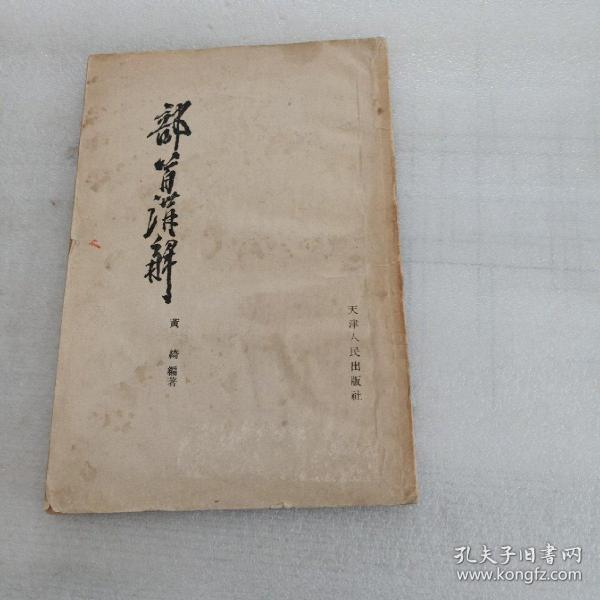 部首講解
黃綺編著
天津人民出版社
孔夫子旧书网
www.kongfz.com